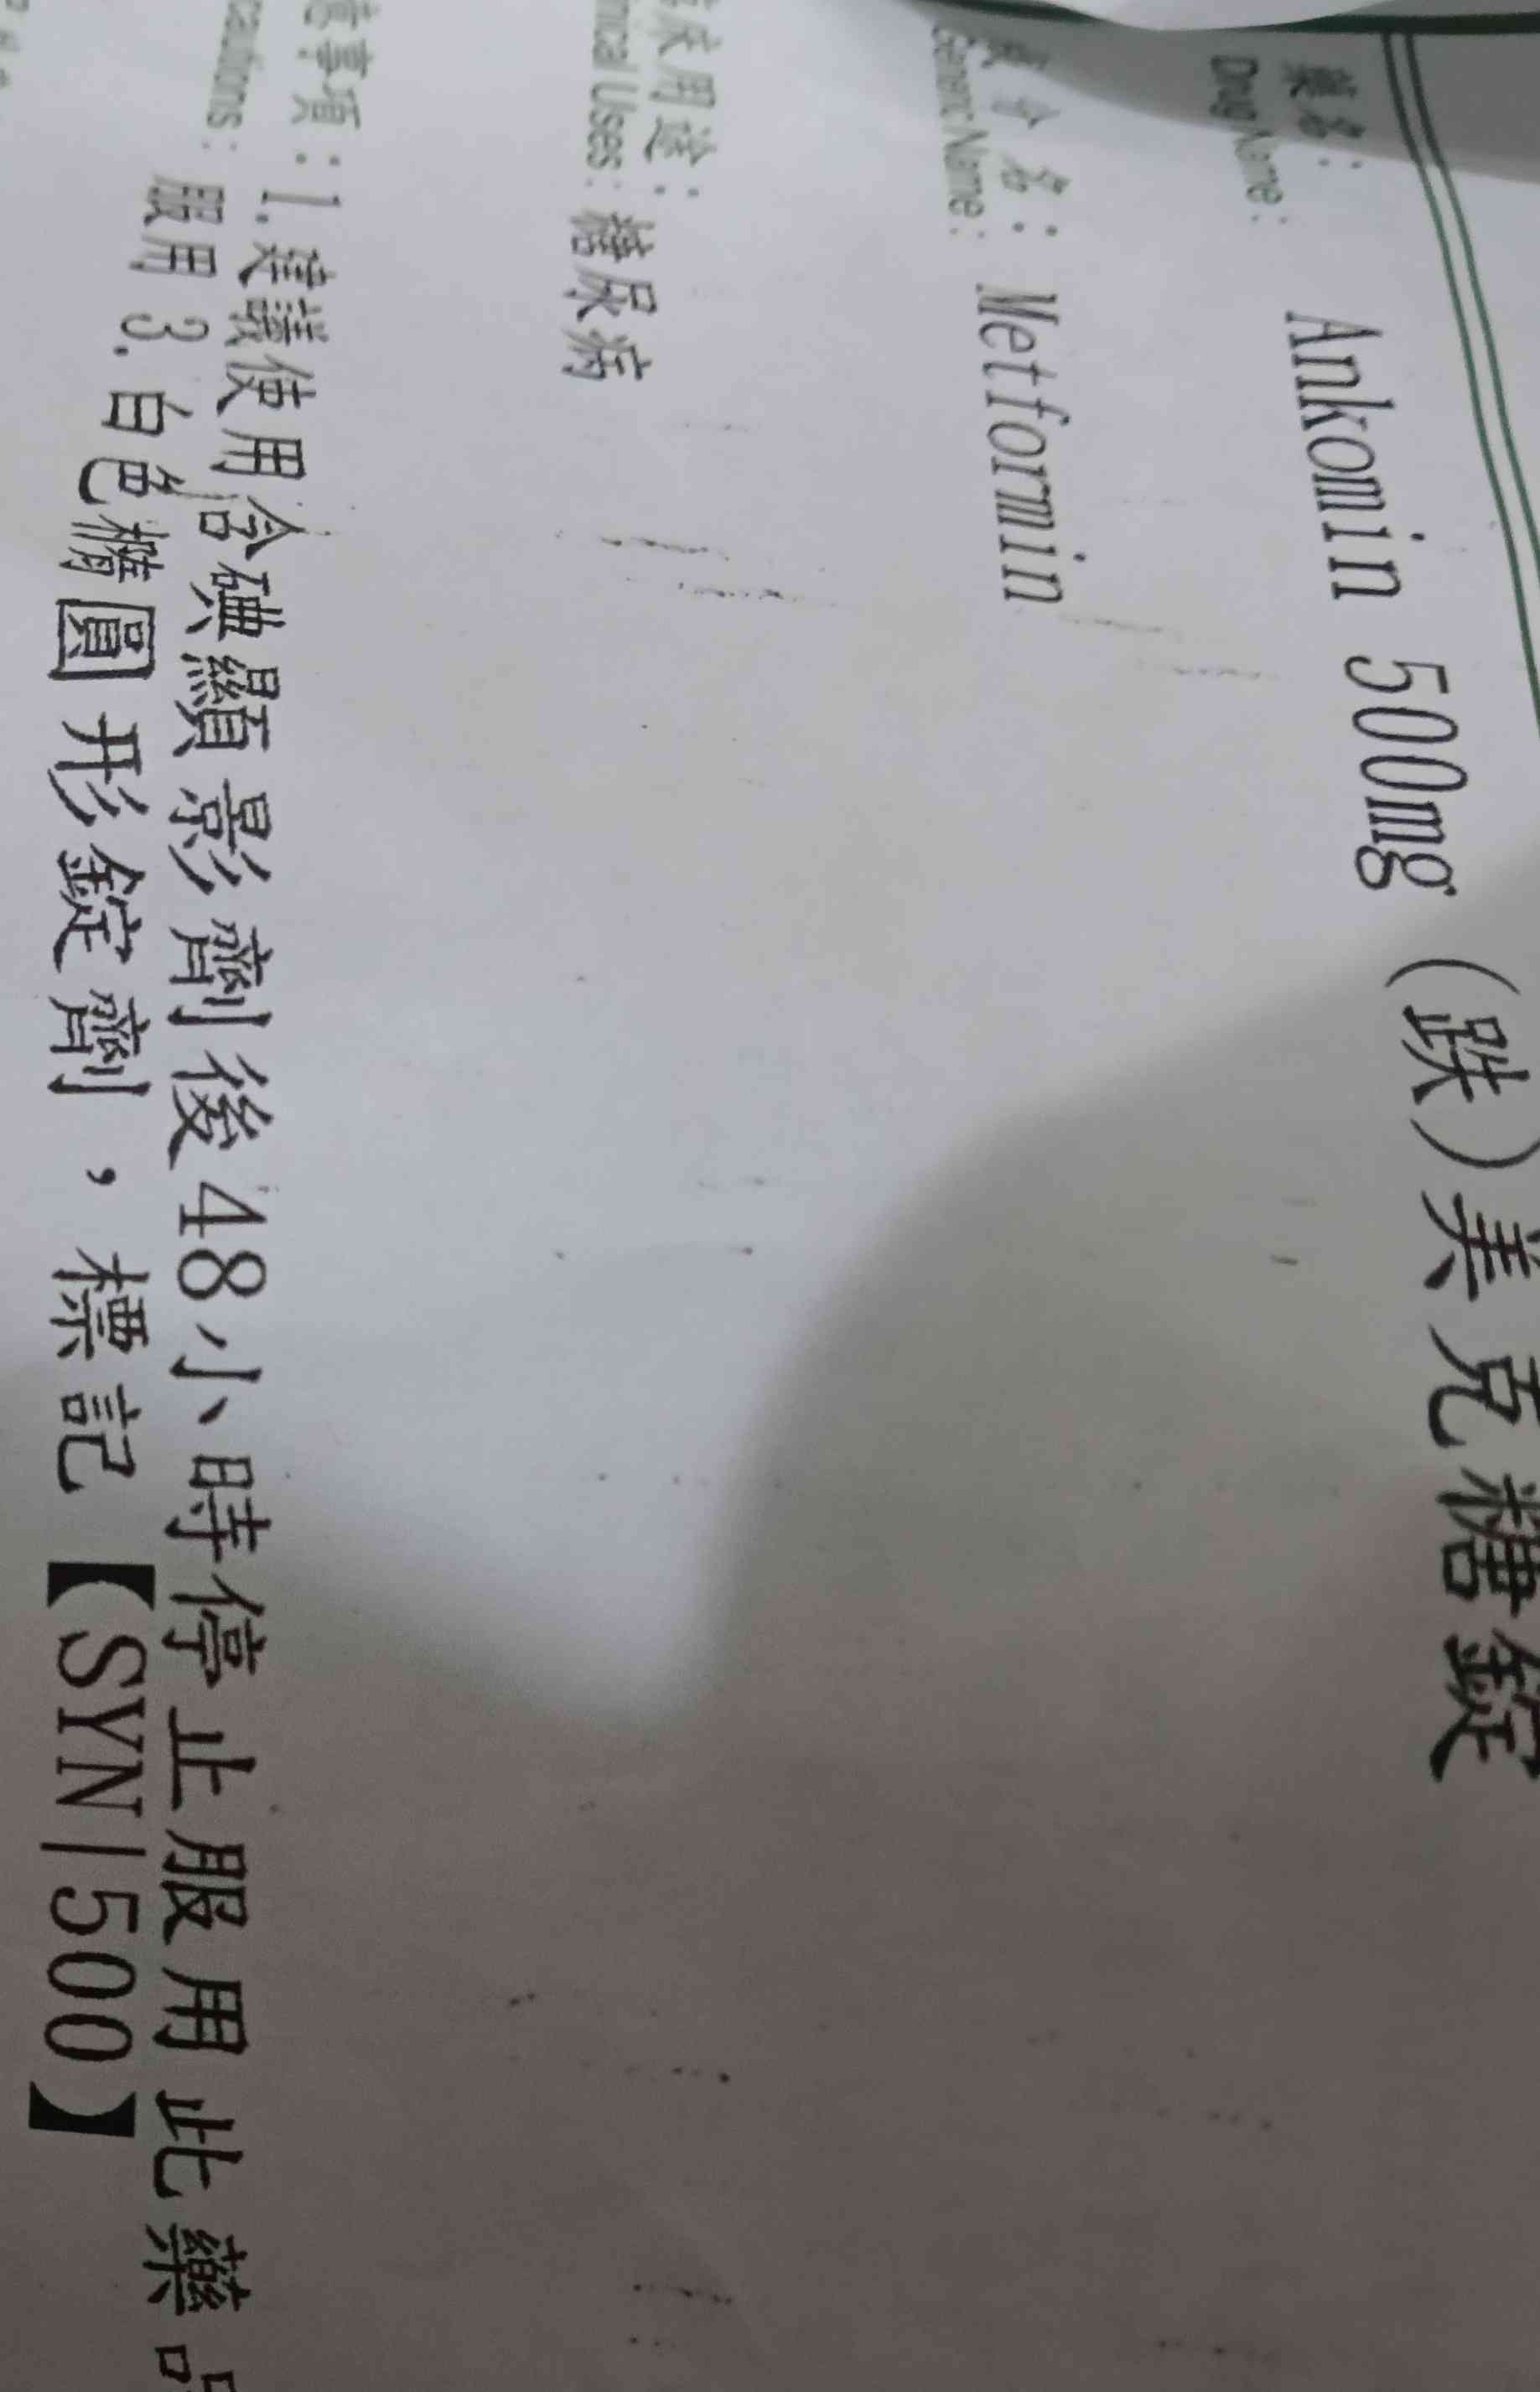 藥名： Ankomin 500mg (跌)美克糖錠
Drug Name:
成分名： Metformin
Generic Name:
用途： 糖尿病
Uses:
事項：1.建議使用含碘顯影劑後48小時停止服用此藥品
服用 3.白色橢圓形錠劑，標記【SYN|500】